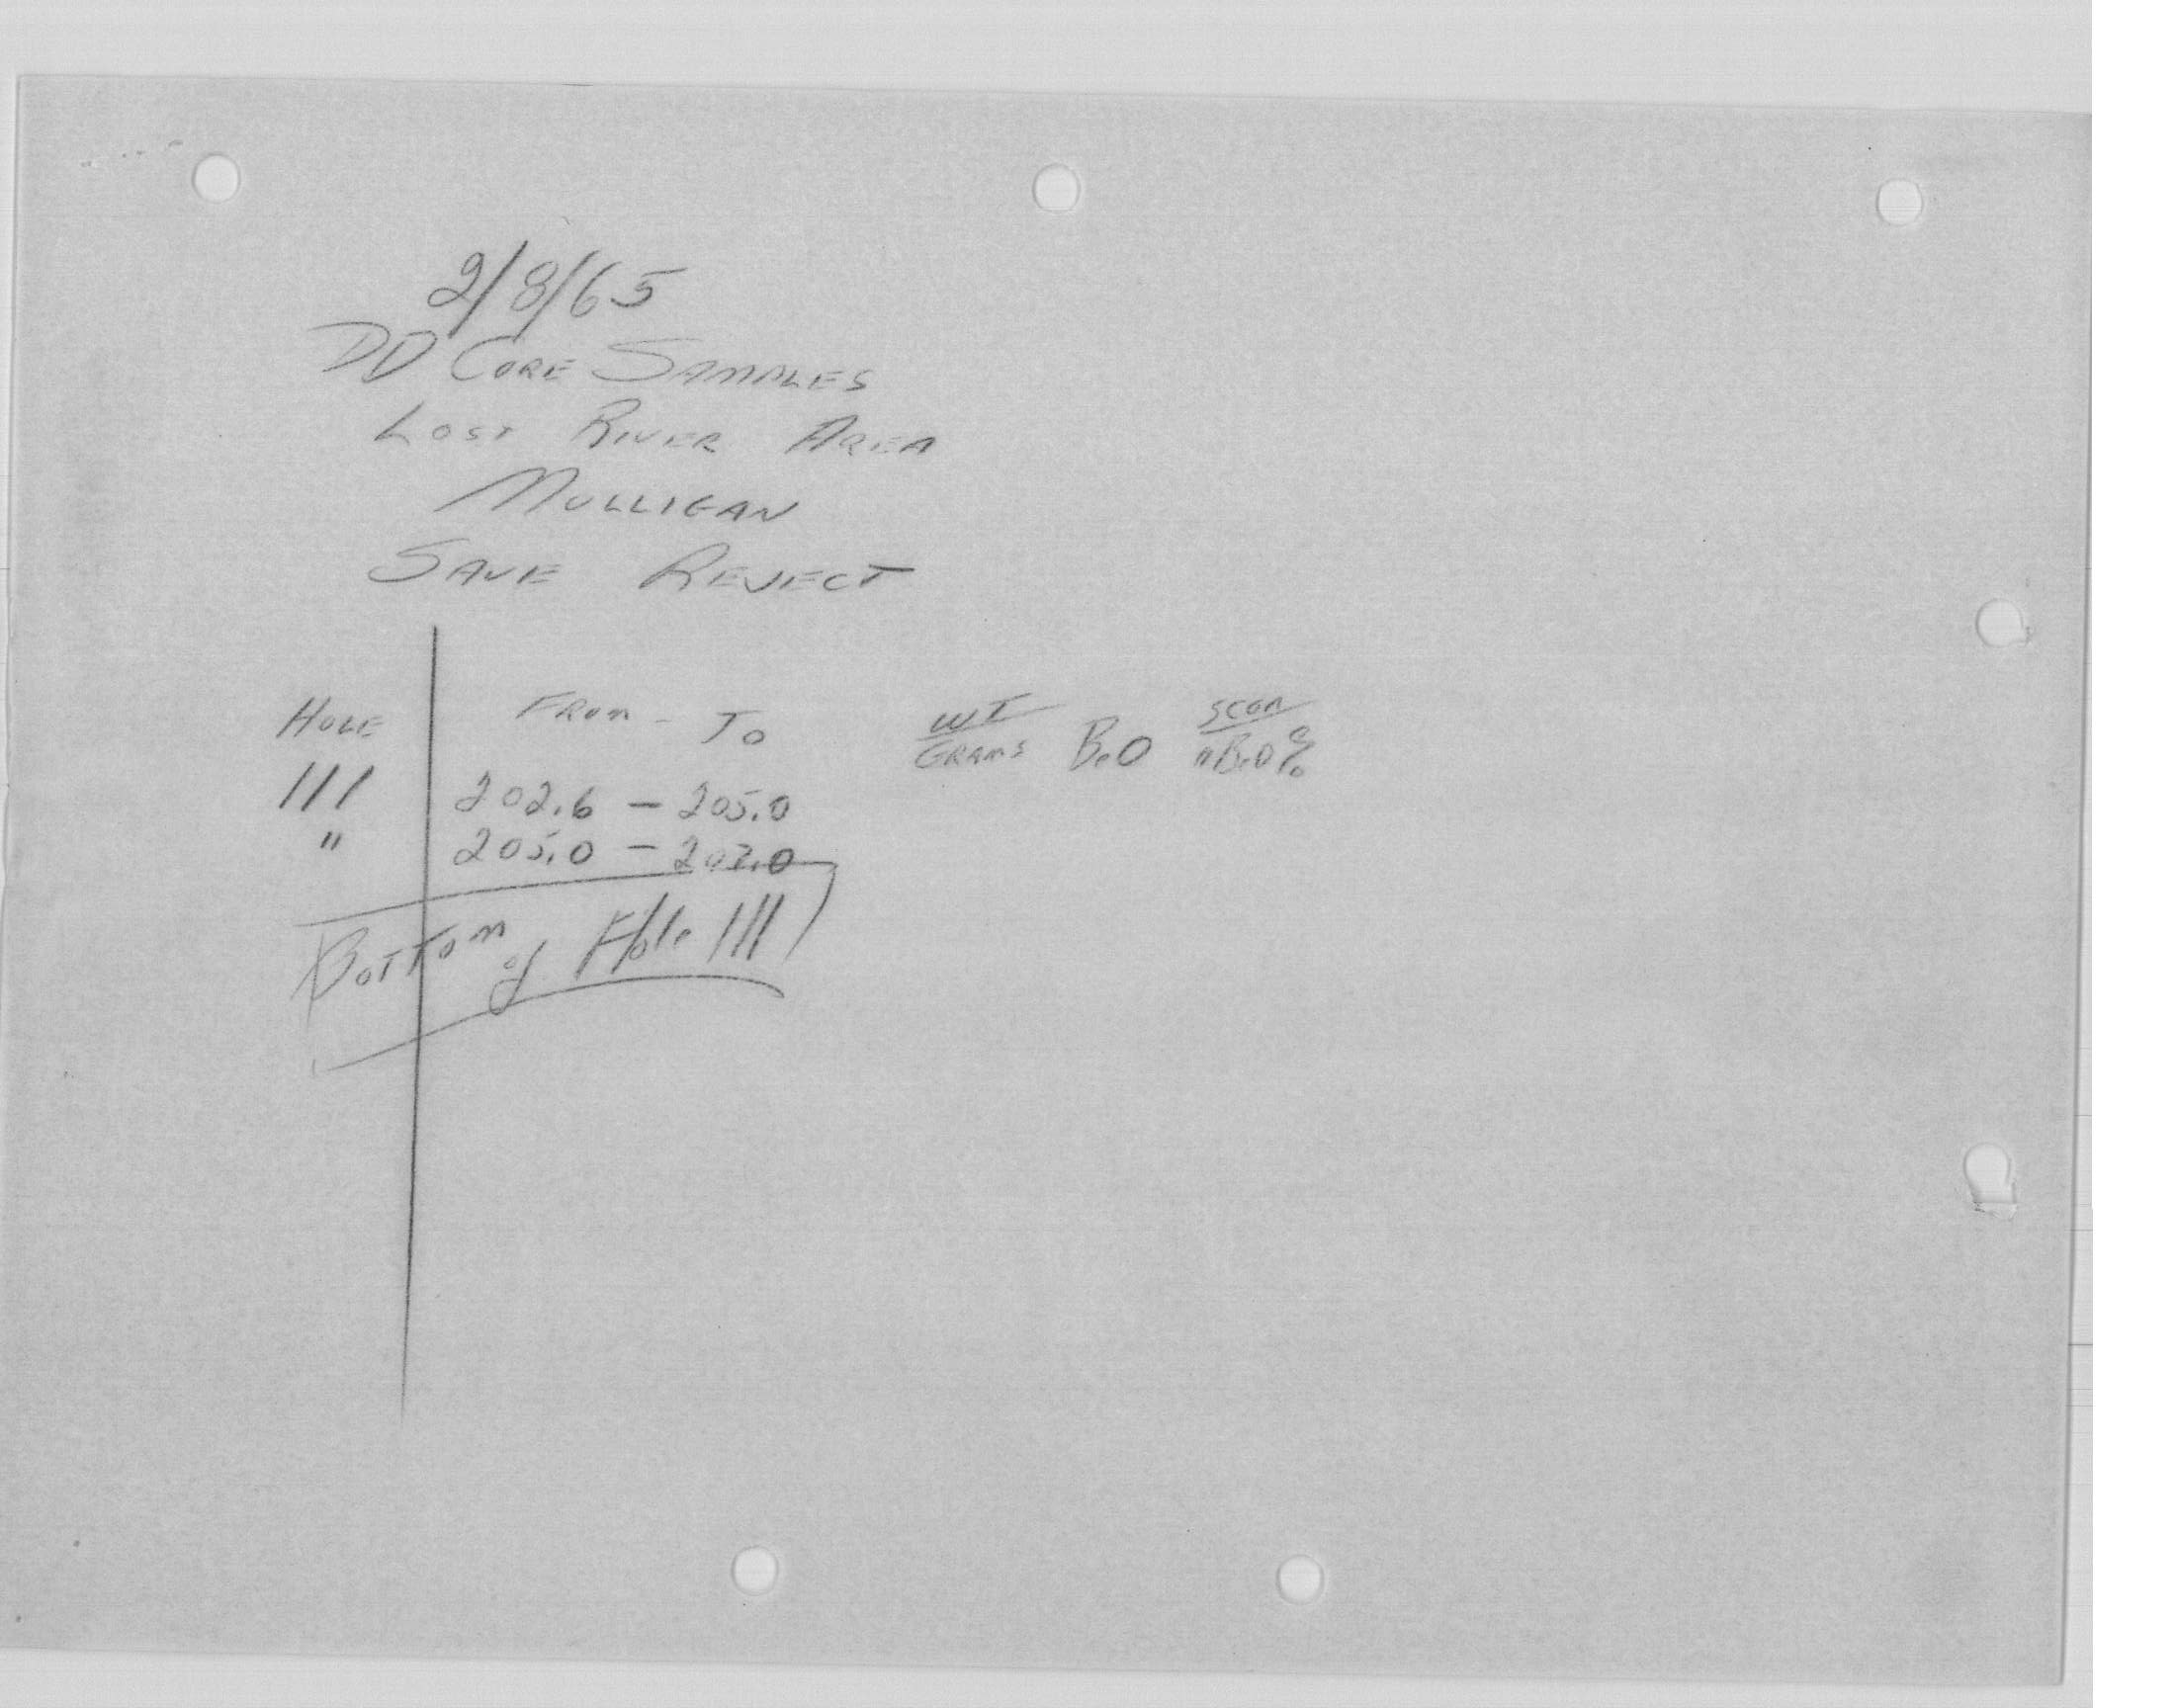 2/8/65
DD CORE SAMPLES
LOST RIVER AREA
MULLIGAN
SAVE REJECT
HOLE FROM - TO WT GRAMS BeO SCOM BeO %
111 202.6 - 205.0
" 205.0 - 207.0
BOTTOM of Hole 111